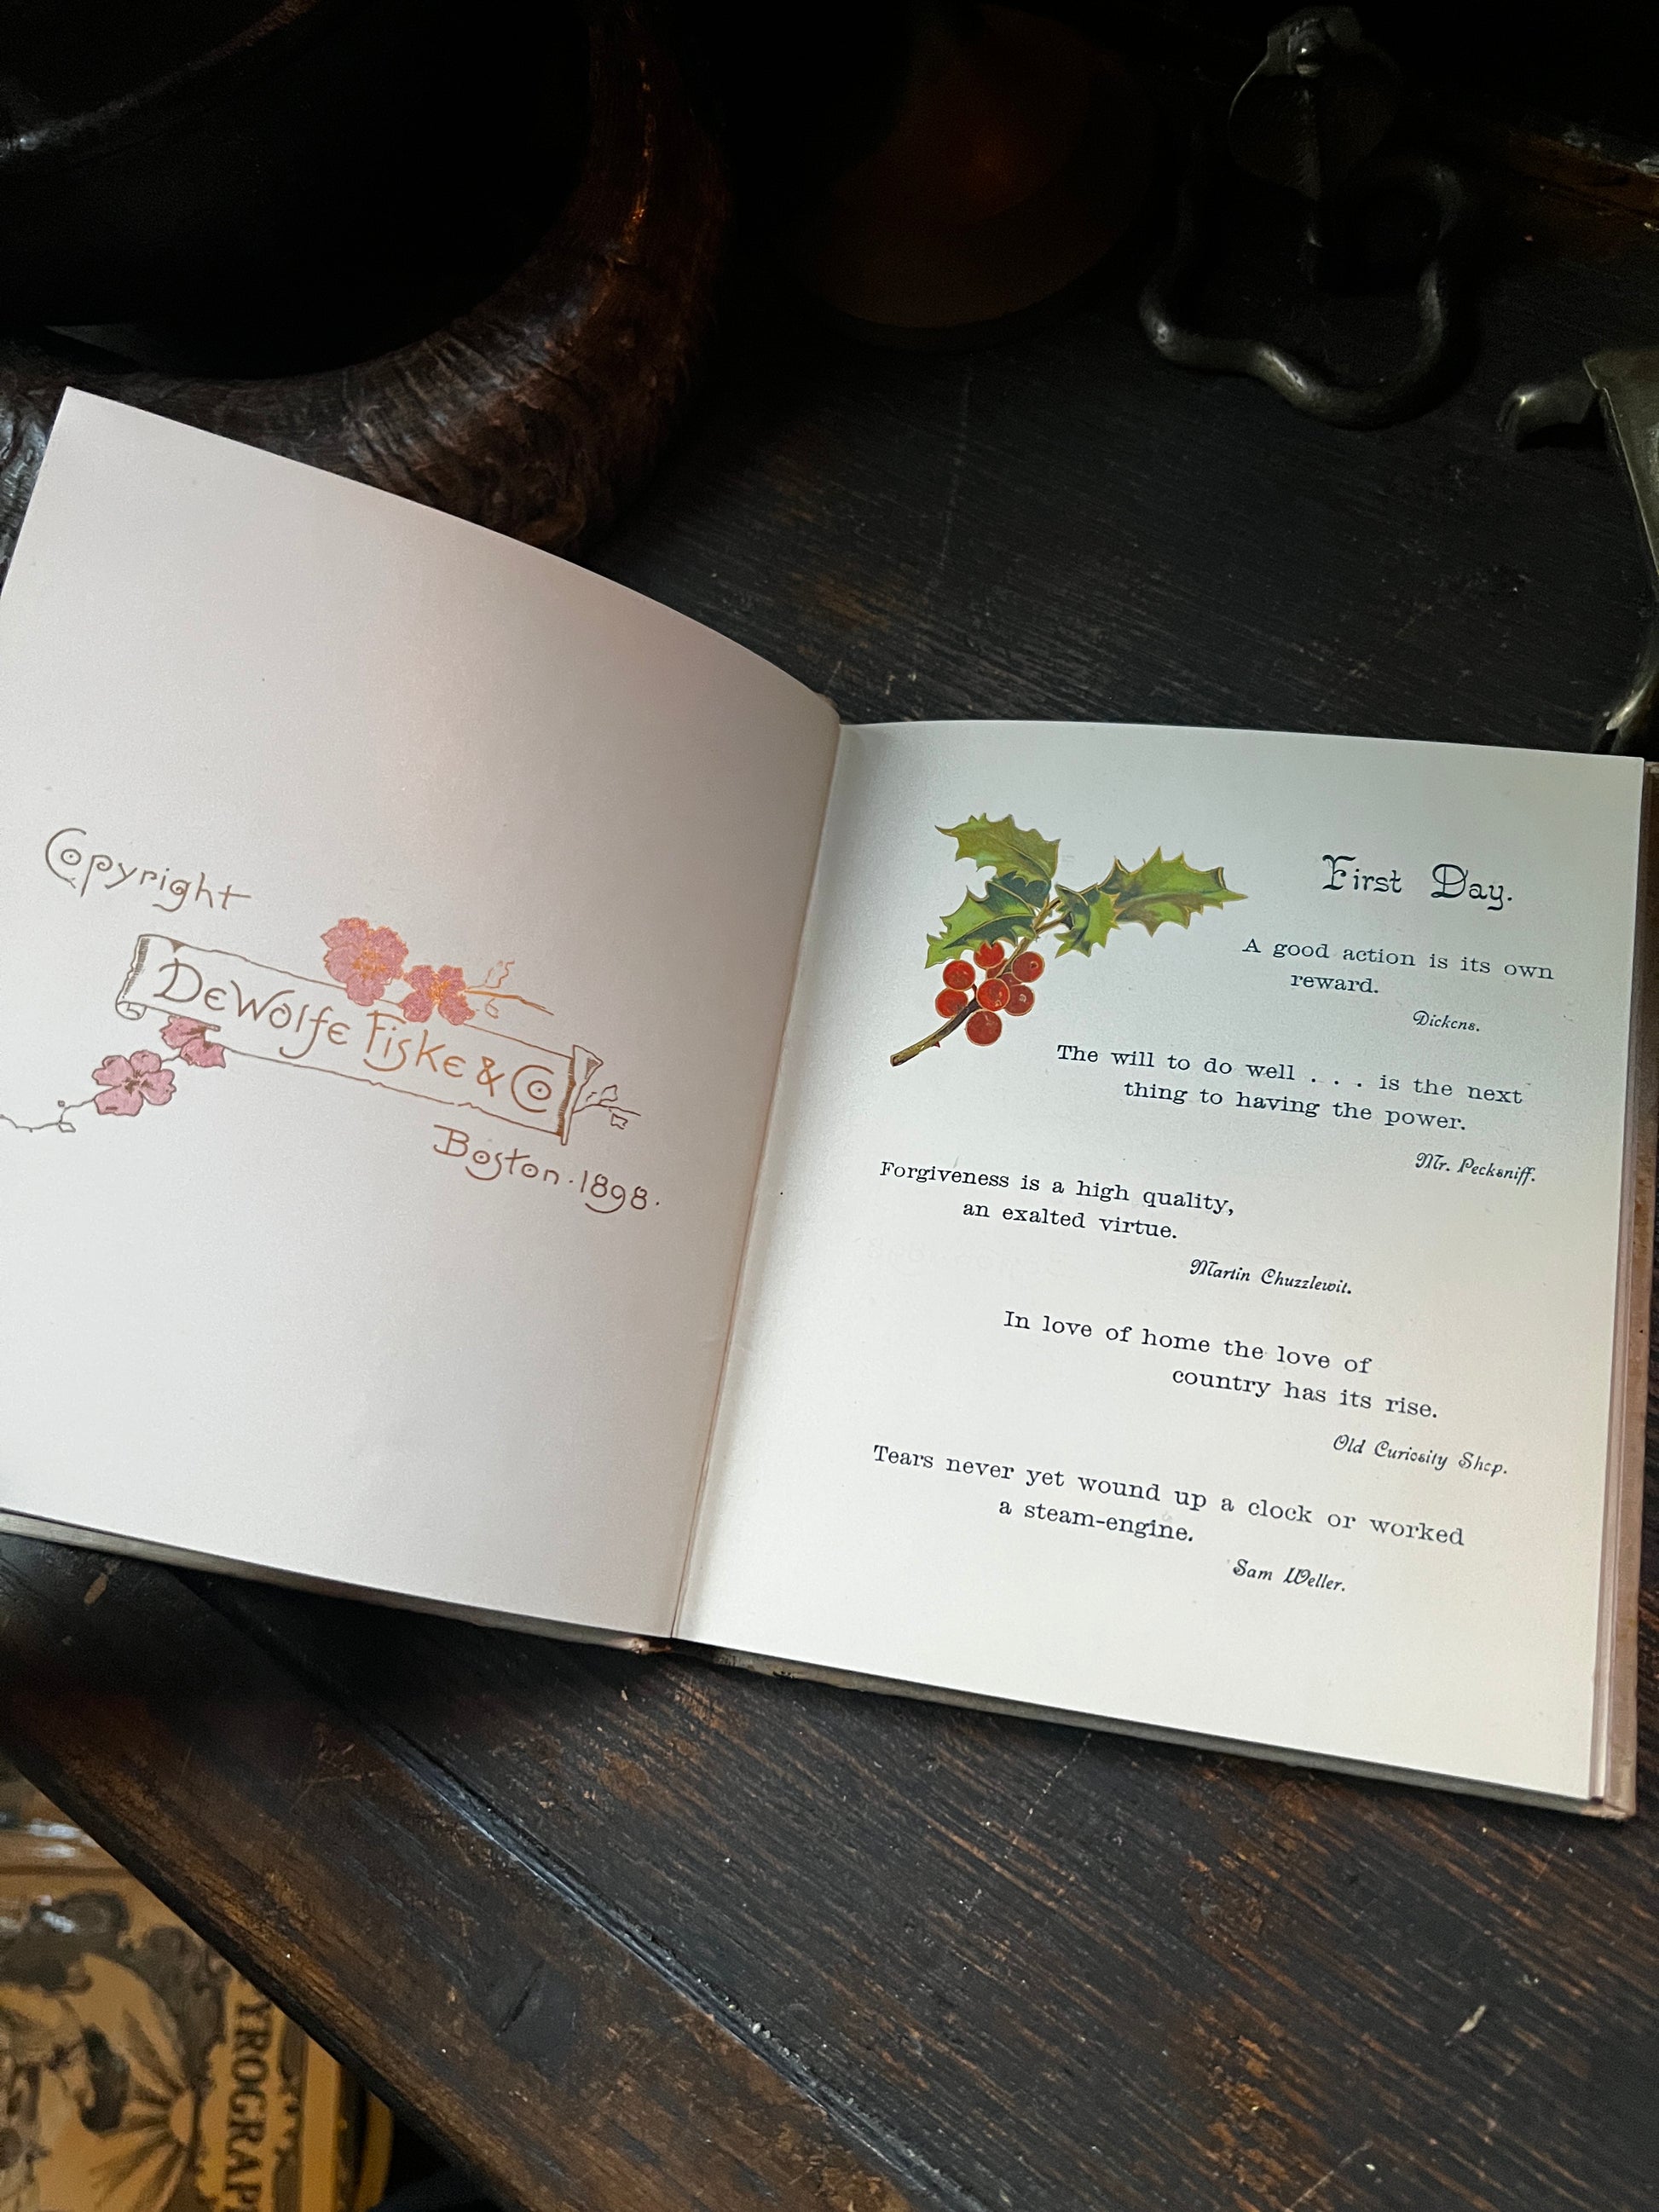 Copyright
DeWolfe Fiske & Co
Boston · 1898 ·
First Day.
A good action is its own
reward.
Dickens.
The will to do well . . . is the next
thing to having the power.
Mr. Pecksniff.
Forgiveness is a high quality,
an exalted virtue.
Martin Chuzzlewit.
In love of home the love of
country has its rise.
Old Curiosity Shop.
Tears never yet wound up a clock or worked
a steam-engine.
Sam Weller.
YROGRAP